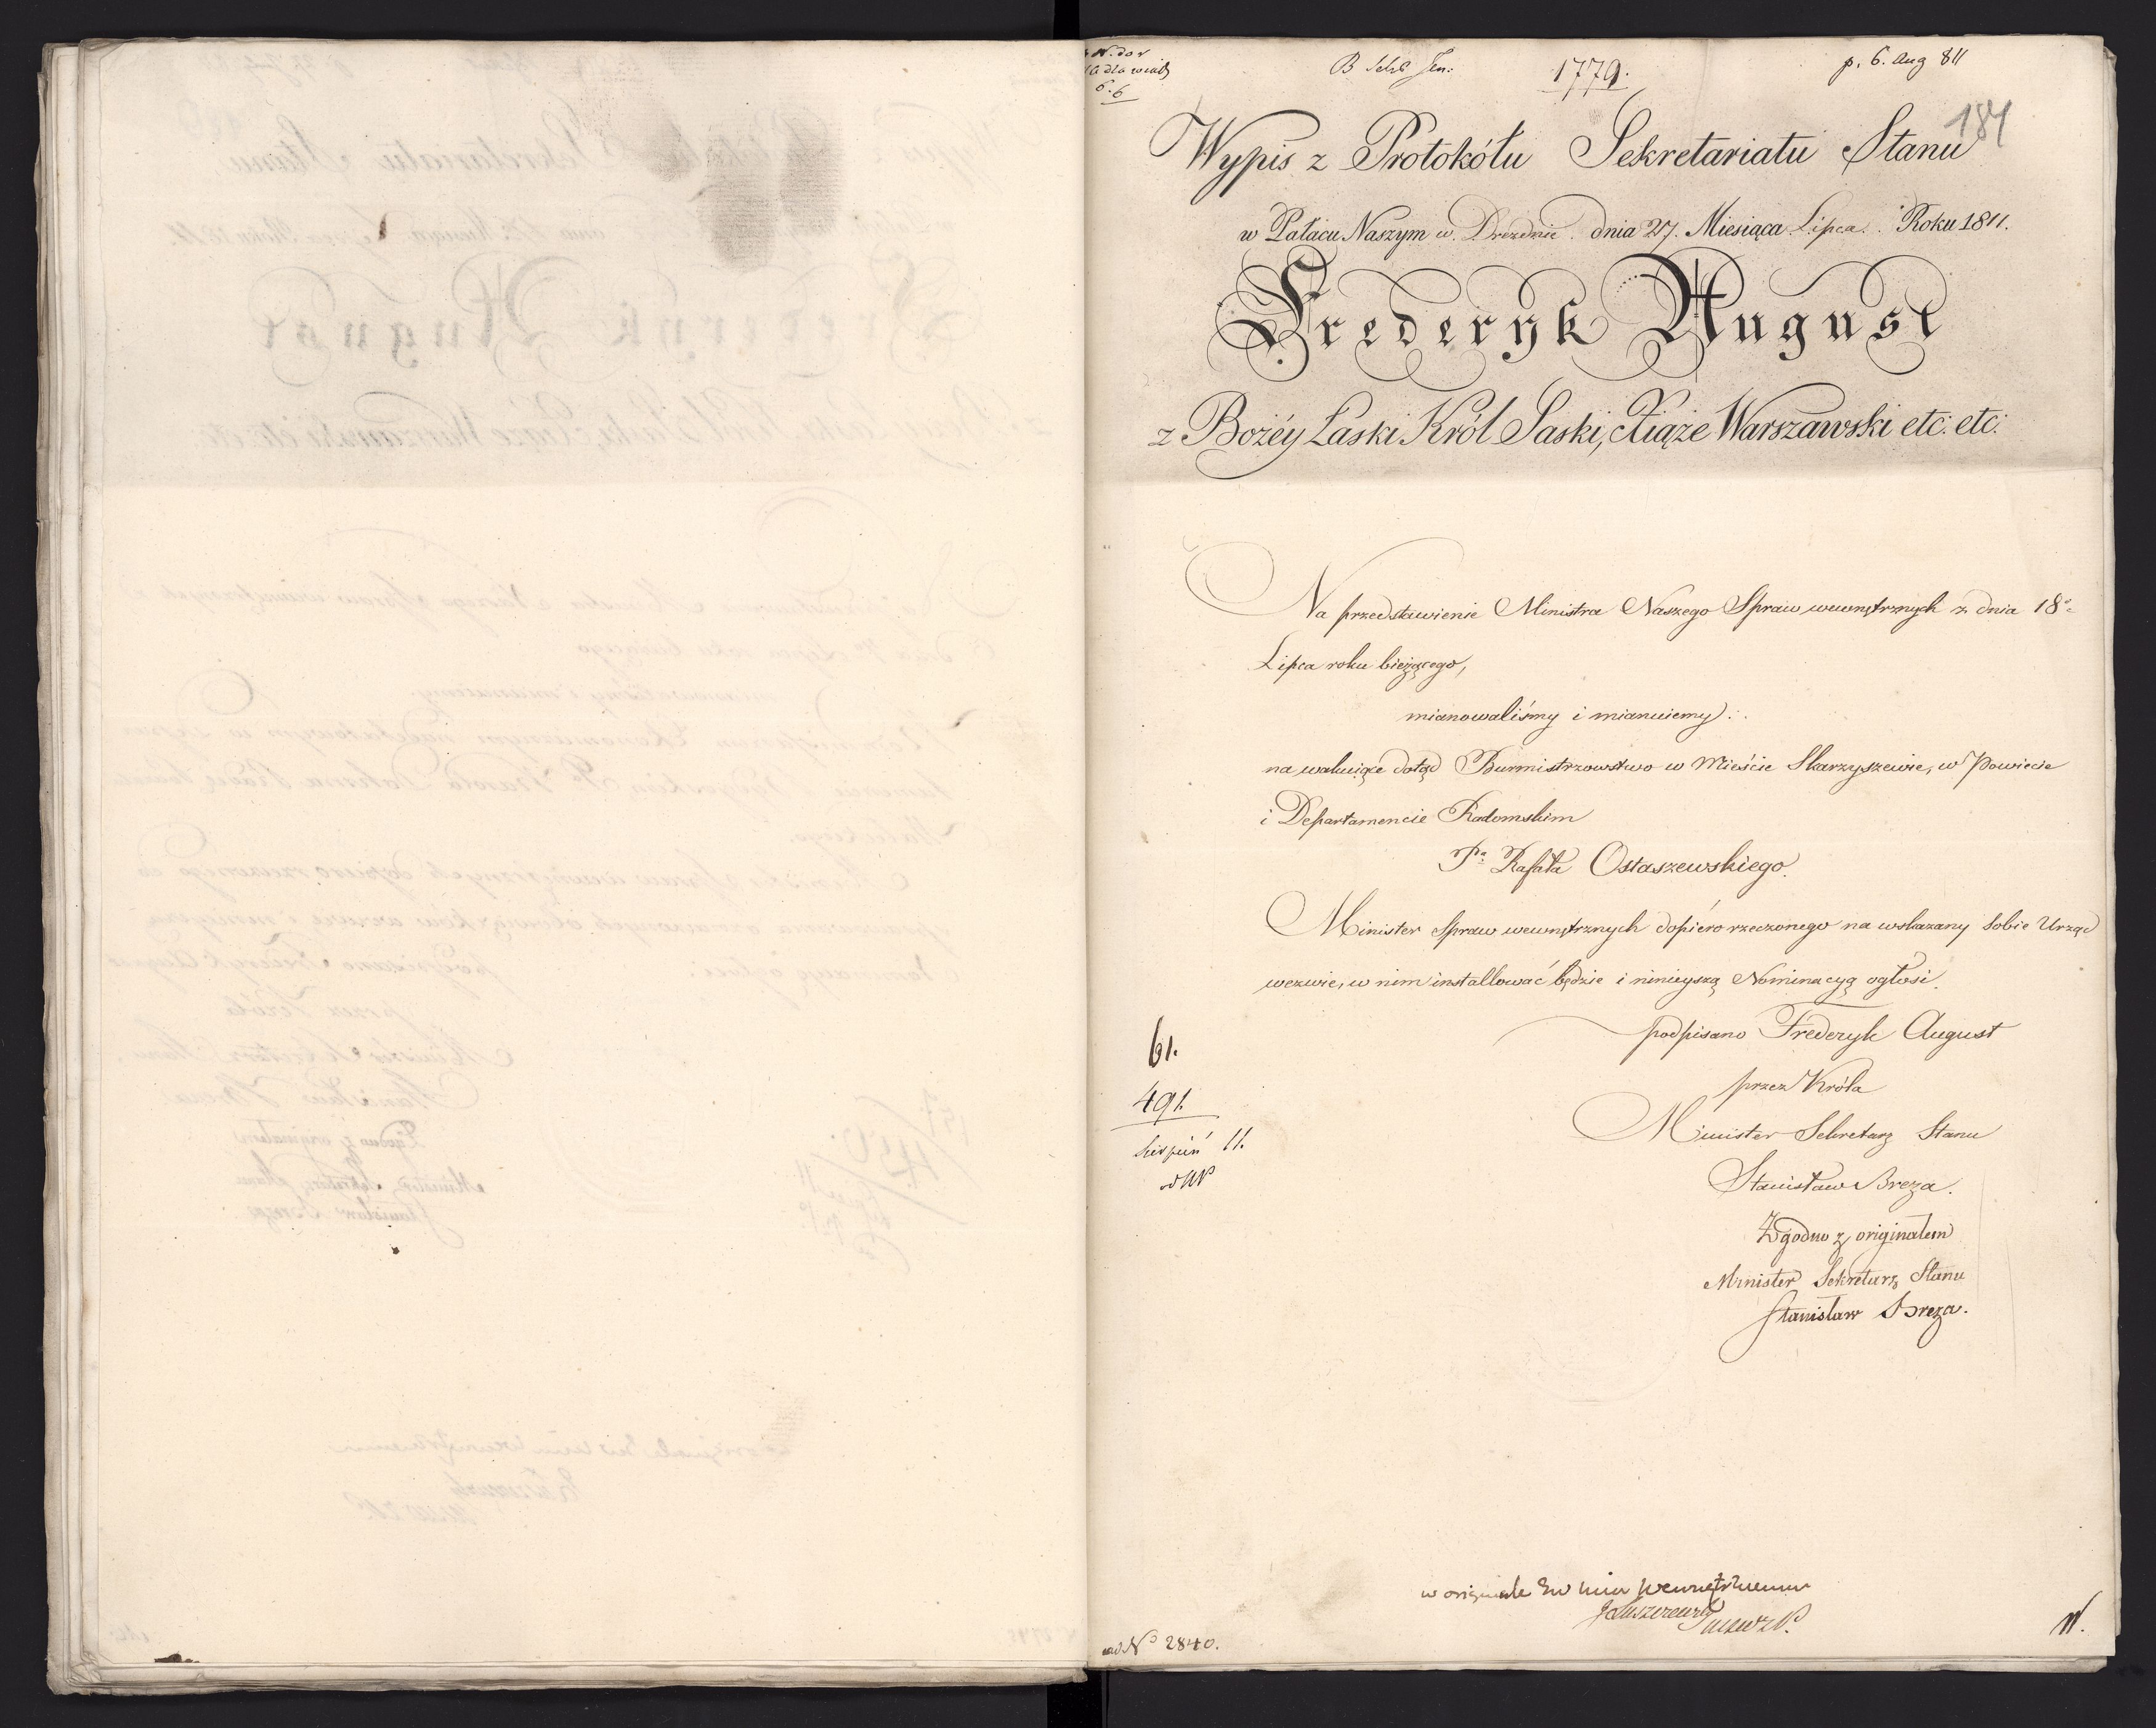 B Sekr Jen:
1779.
p. 6. Aug 811
181
Wypis z Protokółu Sekretariatu Stanu
w Pałacu Naszym w Dreźdnie dnia 27. Miesiąca Lipca Roku 1811.
Frederyk August
z Bożéy Łaski Król Saski, Xiąże Warszawski etc: etc:
Na przedstawienie Ministra Naszego Spraw wewnętrznych z dnia 18º
Lipca roku bieżącego,
mianowaliśmy i mianuiemy:
na wakuiące dotąd Burmistrzowstwo w Mieście Skarzyszewie, w Powiecie
i Departamencie Radomskim
Pª Rafała Ostaszewskiego.
Minister Spraw wewnętrznych dopiéro rzeczonego na wskazany sobie Urząd
wezwie, w nim installować będzie i ninieyszą Nominacyą ogłosi.
podpisano Frederyk August
61.
przez Króla
491.
Minister Sekretarz Stanu
Sierpień 11.
Stanisław Breza.
Zgodno z originałem
Minister Sekretarz Stanu
Stanisław Breza.
w originale
ad Nº 2840.